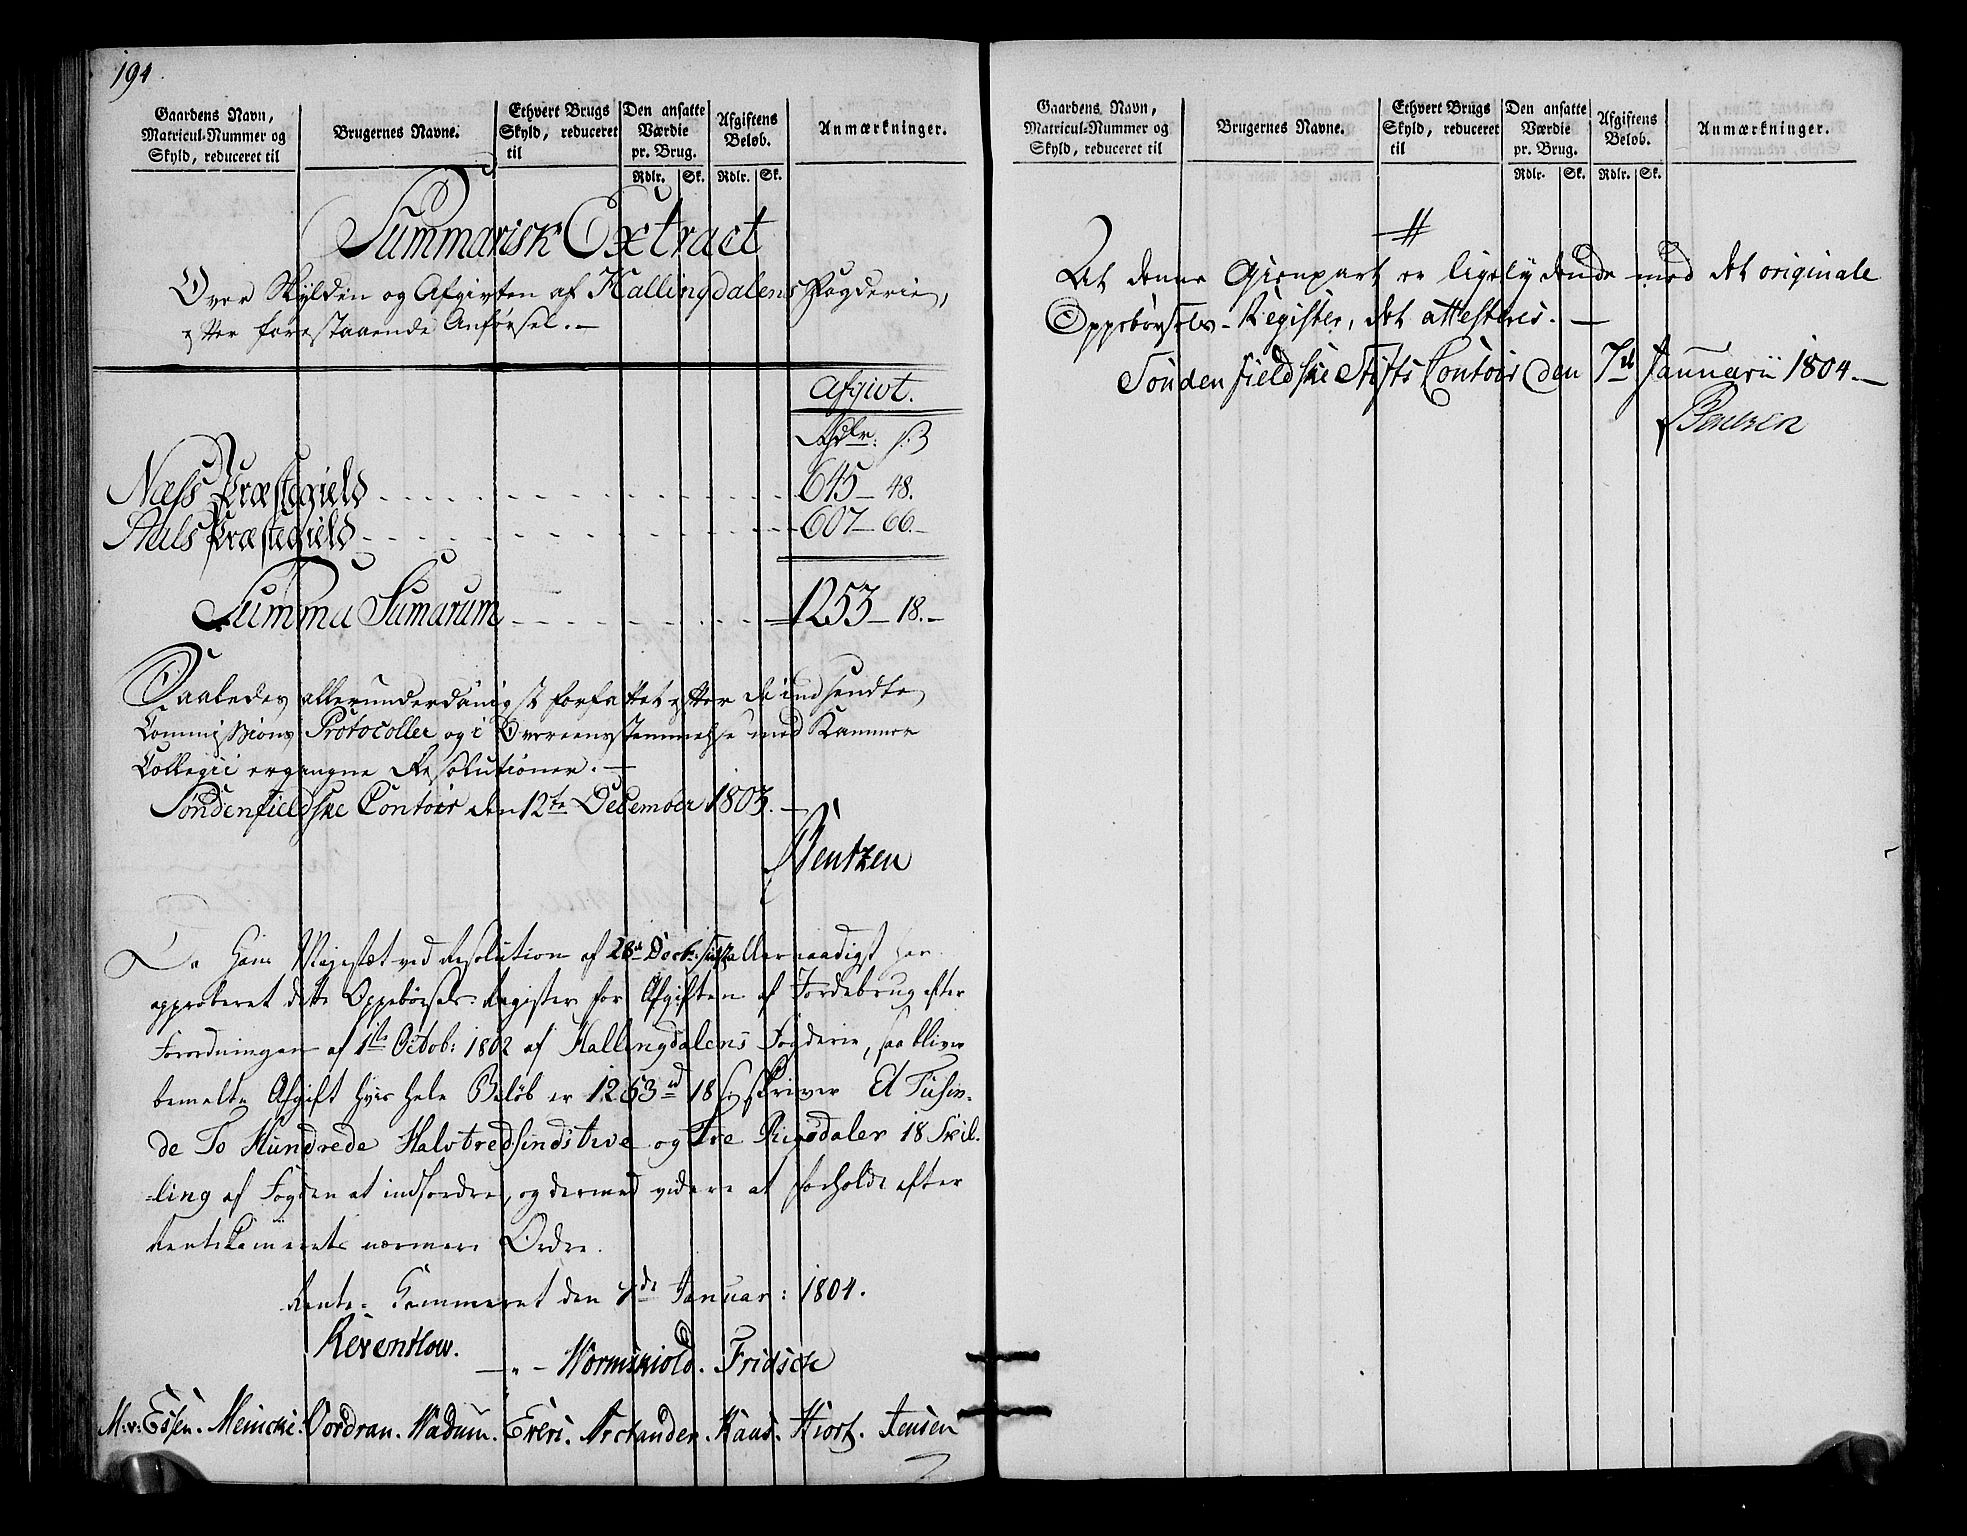 194.
Gaardens Navn, Matricul-Nummer og Skyld, reduceret til
Brugernes Navne.
Ethvert Brugs Skyld, reduceret til
Den ansatte Værdie pr. Brug.
Afgiftens Beløb.
Anmærkninger.
Rdlr. Sk. Rdlr. Sk.
Summarisk Extract
Over Skylden og Afgivten af Hallingdalens Fogderie,
efter forestaaende Anførsel. –
Afgivt.
Rdlr: s:ß
Næss Præstegield 645 – 48.
Aals Præstegield 607 – 66. –
Summa Sumarum 1253 – 18. –
Saaledes allerunderdanigst forfattet efter de indsendte
Commissions Protocoller og i Overeensstemmelse med Kammer
Collegii ergangne Resolutioner. –
Søndenfieldske Contoir den 12te December 1803. –
Bentzen
Da Hans Majestæt ved Resolution af 28de Decb: sidst allernaadigst har
approberet dette Oppebørsels-Register for Afgiften af Jordebrug efter
Forordningen af 1ste Octob: 1802 af Hallingdalens Fogderie, saa bliver
bemelte Afgift hvis hele Beløb er 1253 rd 18 s: skriver Et Tusin-
de To Hundrede Halvtredsindstive og Tre Rigsdaler 18 Skil-
ling af Fogden at indfordre, og dermed videre at forholde efter
Rentekamerets nærmere Ordre.
Rente-Kammeret den 7de Januar: 1804.
Reventlow.
– „ – Wormskiold. Fridsch
M: v: Essen. Meincke. Oordran. Wadum. Evers. Arctander. Kaas. Hiort. Jensen
Gaardens Navn, Matricul-Nummer og Skyld, reduceret til
Brugernes Navne.
Ethvert Brugs Skyld, reduceret til
Den ansatte Værdie pr. Brug.
Afgiftens Beløb.
Anmærkninger.
Rdlr. Sk. Rdlr. Sk.
At denne Gienpart er ligelydende med det originale
Oppebørsels-Register, det attesteres. –
Søndenfieldske Stifts Contoir den 7de Januarii 1804. –
Bentzen